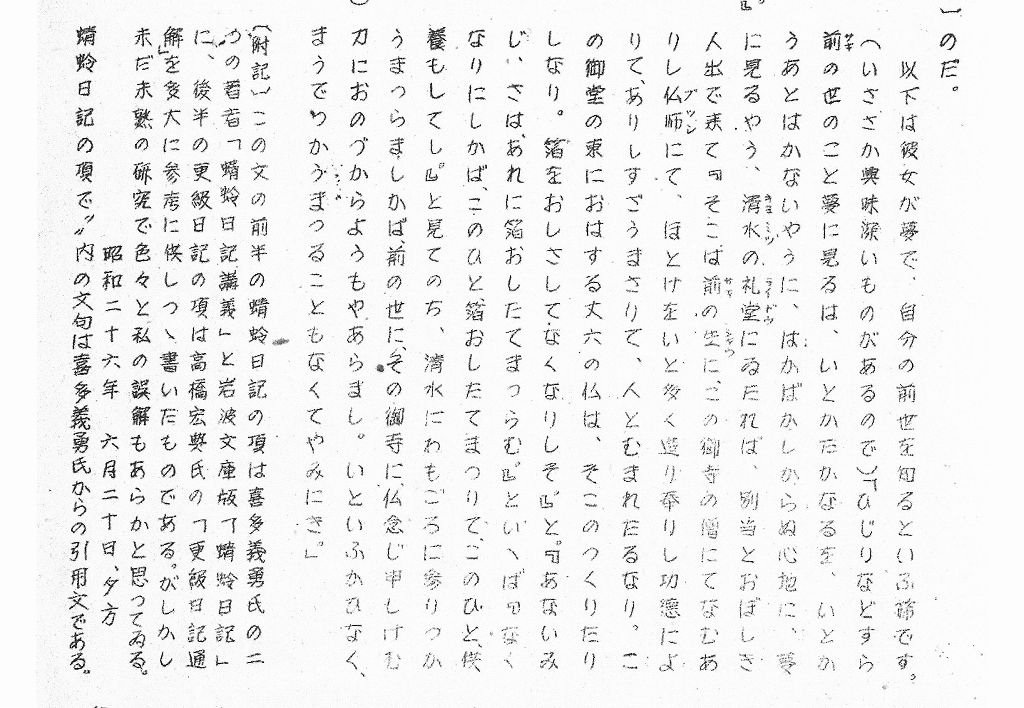 のだ。
以下は彼女が夢で、自分の前世を知るといふ節です。
(いささか興味深いものがあるので)「ひじりなどすら
前の世のこと夢に見るは、いとかたかなるを、いとか
うあとはかないやうに、はかばかしからぬ心地に、夢
に見るやう、清水の礼堂にゐたれば、別当とおぼしき
人出で来て『そこは前の生に、この御寺の僧にてなむあ
りし仏師にて、ほとけをいと多く造り奉りし功徳によ
りて、ありしすざうまさりて、人とむまれたるなり。こ
の御堂の東におはする丈六の仏は、そこのつくりたり
しなり。箔をおしさしてなくなりしぞ』と。『あないみ
じ、さは、あれに箔おしたてまつらむ』といへば『なく
なりにしかば、このひと箔おしたてまつりて、このひと、供
養もしてし』と見てのち、清水にねむごろに参りつか
うまつらましかば、前の世に、その御寺に仏念じ申しけむ
力におのづからようもやあらまし。いといふかひなく、
まうでつかうまつることもなくてやみにき。」
(附記)この文の前半の蜻蛉日記の項は喜多義勇氏の二
つの著者「蜻蛉日記講義」と岩波文庫版「蜻蛉日記」
に、後半の更級日記の項は高橋宏典氏の「更級日記通
解」を多大に参考に供しつゝ書いたものである。がしかし
未だ未熟の研究で色々と私の誤解もあらかと思ってゐる。
昭和二十六年 六月二十日、夕方
蜻蛉日記の項で〃〃内の文句は喜多義勇氏からの引用文である。